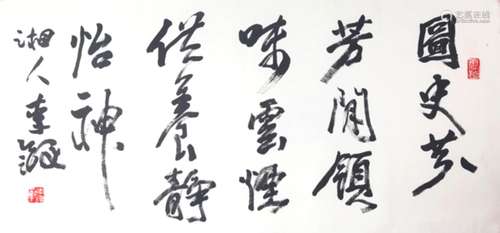 圖史芬
芳閒領
味雲煙
供養靜
怡神
湘人李鐸